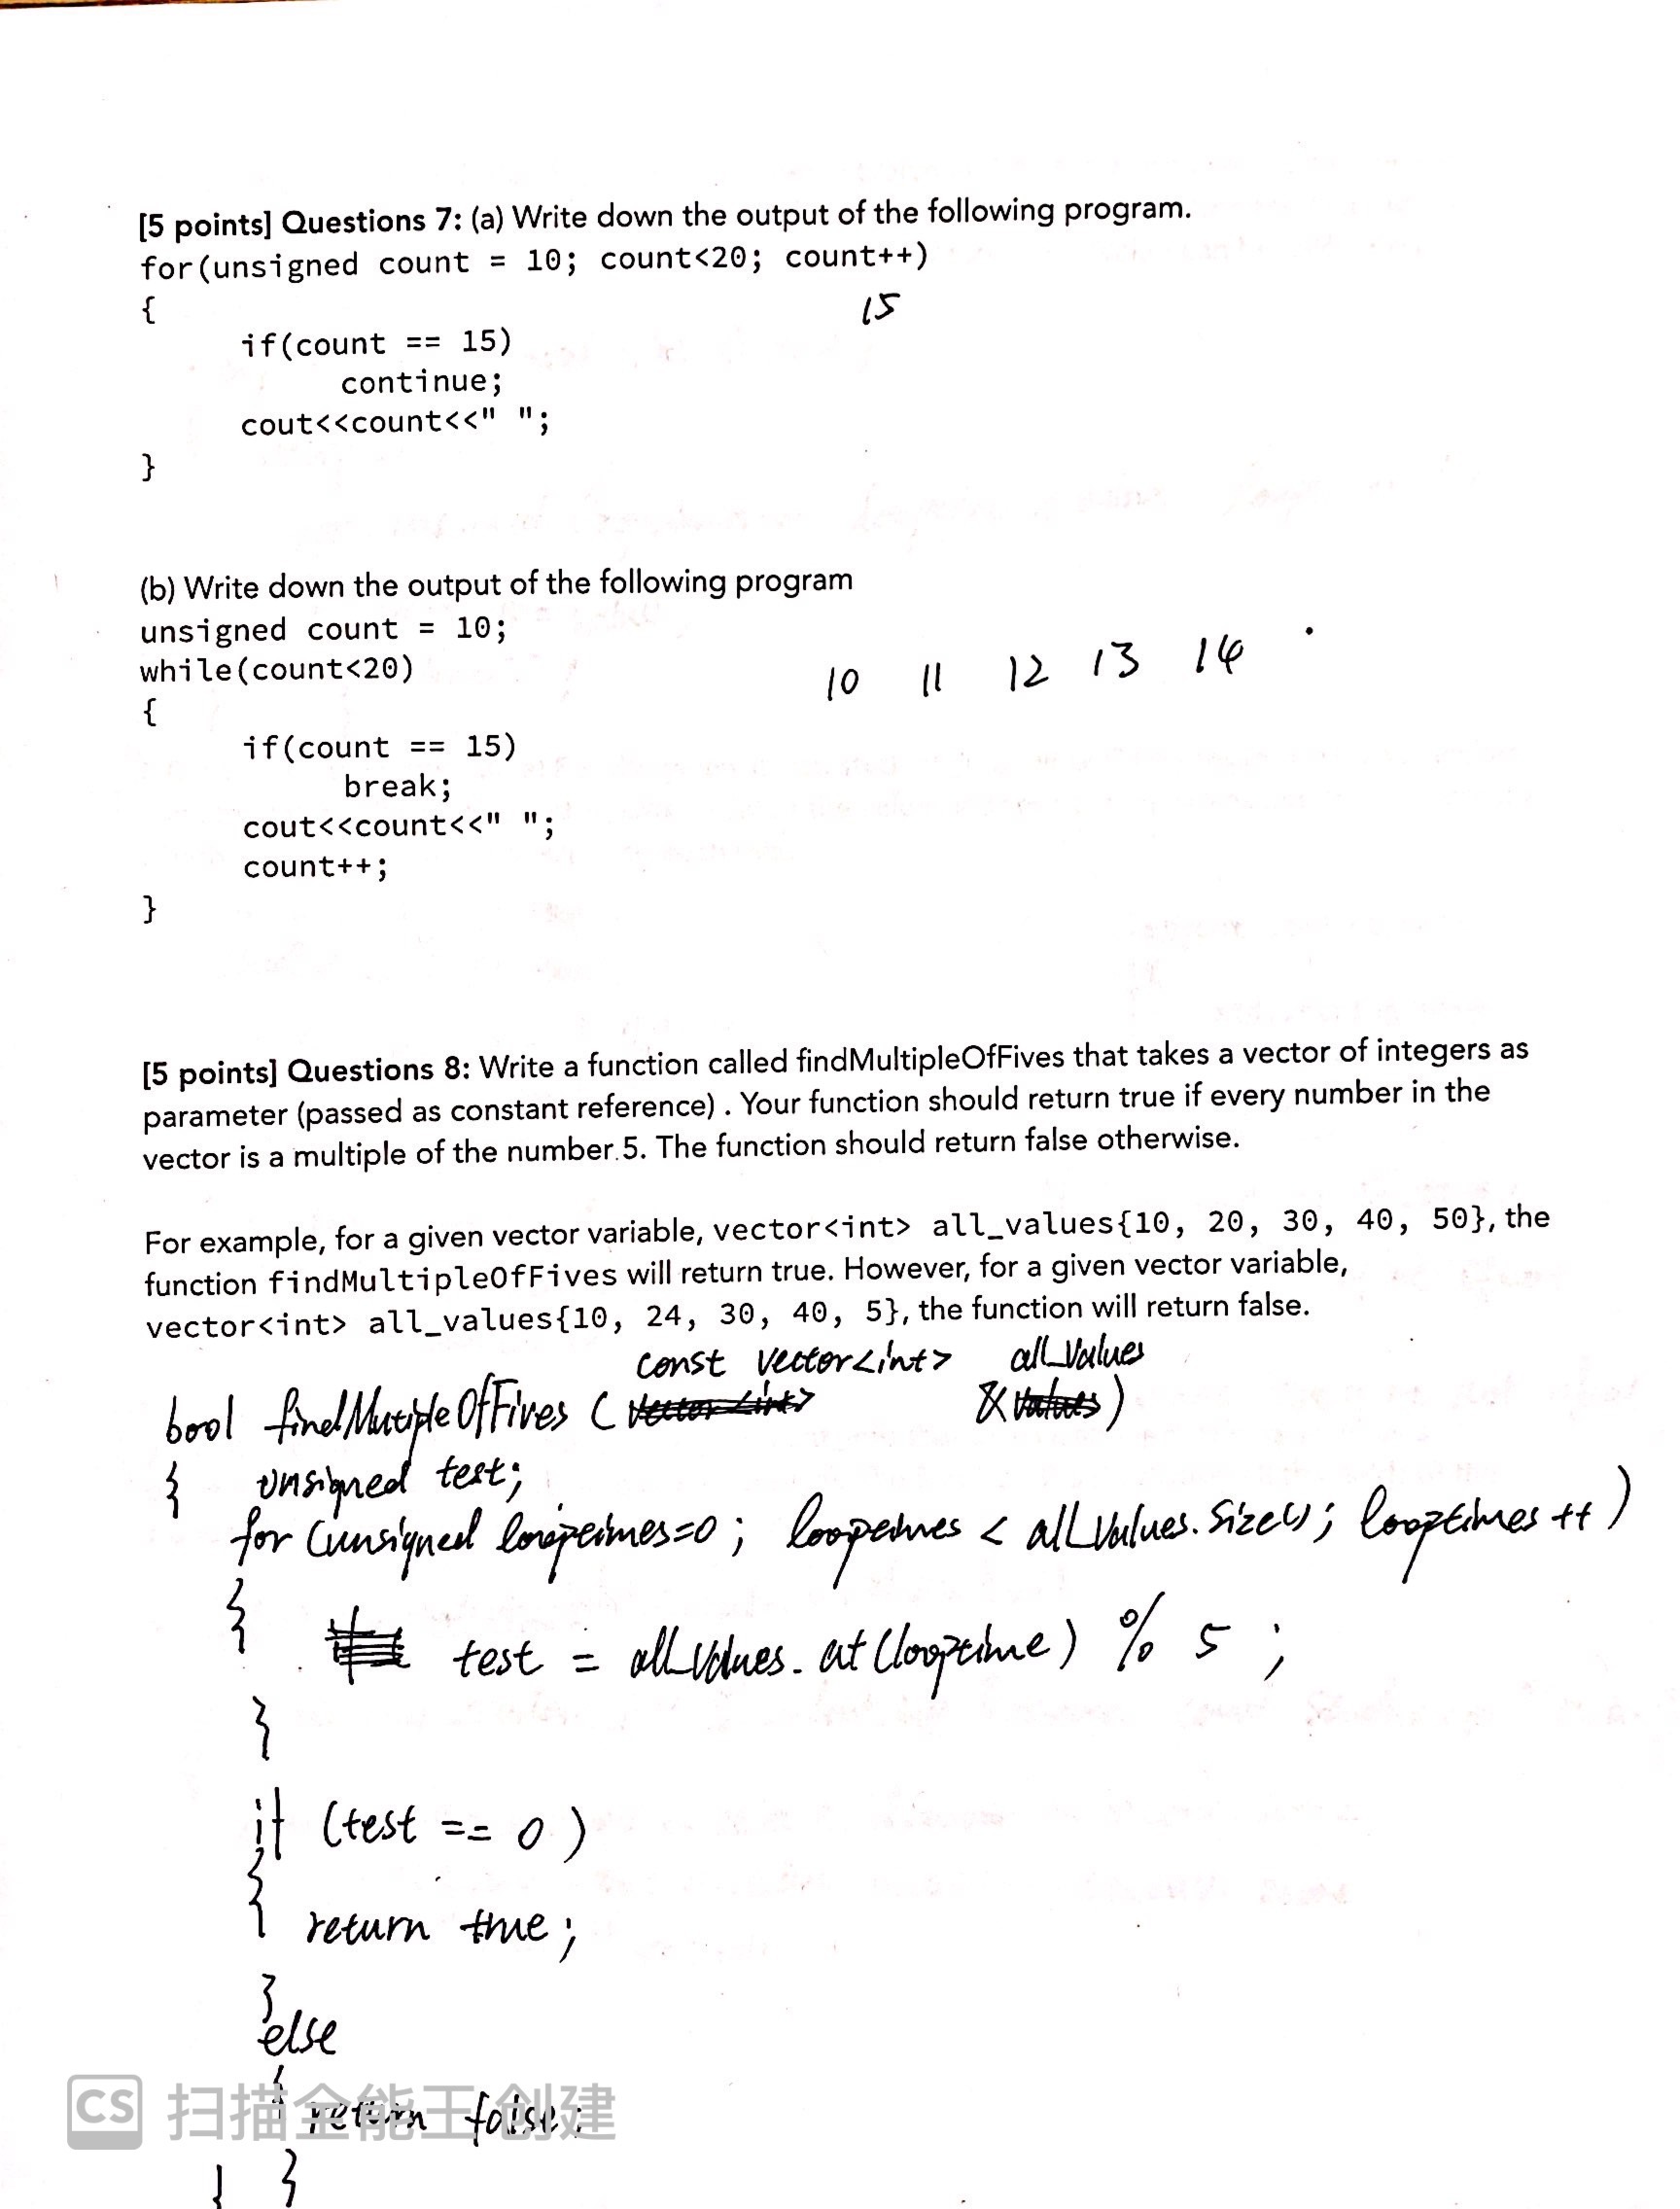 [5 points] Questions 7: (a) Write down the output of the following program.
for(unsigned count = 10; count<20; count++)
{
15
if(count == 15)
continue;
cout<<count<<" ";
}
(b) Write down the output of the following program
unsigned count = 10;
while(count<20)
10 11 12 13 14
{
if(count == 15)
break;
cout<<count<<" ";
count++;
}
[5 points] Questions 8: Write a function called findMultipleOfFives that takes a vector of integers as
parameter (passed as constant reference) . Your function should return true if every number in the
vector is a multiple of the number 5. The function should return false otherwise.
For example, for a given vector variable, vector<int> all_values{10, 20, 30, 40, 50}, the
function findMultipleOfFives will return true. However, for a given vector variable,
vector<int> all_values{10, 24, 30, 40, 5}, the function will return false.
const vector<int> all_values
bool findMutipleOfFives ( vector<int> & values )
{ unsigned test;
for (unsigned looptimes=0; looptimes < all_values.size(); looptimes ++ )
{
test = all_values. at (looptime) % 5 ;
}
if (test == 0 )
{
return true;
}
else
{ return false;
} }
CS 扫描全能王 创建